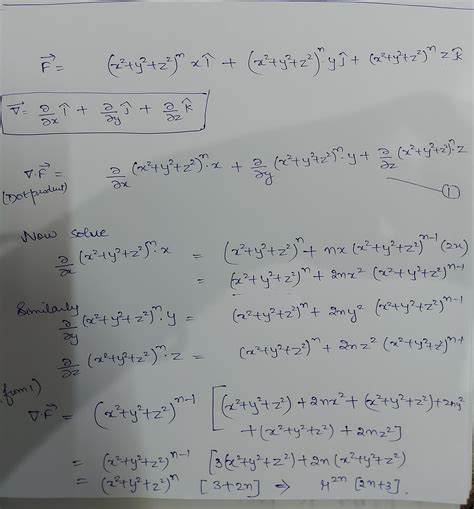 F⃗ = (x²+y²+z²)ⁿ x î + (x²+y²+z²)ⁿ·y ĵ + (x²+y²+z²)ⁿ z k̂
∇⃗ = ∂/∂x î + ∂/∂y ĵ + ∂/∂z k̂
∇·F⃗ = ∂/∂x (x²+y²+z²)ⁿ·x + ∂/∂y (x²+y²+z²)ⁿ·y + ∂/∂z (x²+y²+z²)ⁿ·z
(Dot product) ①
Now solve
∂/∂x (x²+y²+z²)ⁿ·x = (x²+y²+z²)ⁿ + nx (x²+y²+z²)ⁿ⁻¹ (2x)
= (x²+y²+z²)ⁿ + 2nx² (x²+y²+z²)ⁿ⁻¹
Similarly
∂/∂y (x²+y²+z²)ⁿ·y = (x²+y²+z²)ⁿ + 2ny² (x²+y²+z²)ⁿ⁻¹
∂/∂z (x²+y²+z²)ⁿ·z = (x²+y²+z²)ⁿ + 2nz² (x²+y²+z²)ⁿ⁻¹
from 1)
∇·F⃗ = (x²+y²+z²)ⁿ⁻¹ [(x²+y²+z²) + 2nx² + (x²+y²+z²) + 2ny²
+ (x²+y²+z²) + 2nz²]
= (x²+y²+z²)ⁿ⁻¹ [3(x²+y²+z²) + 2n (x²+y²+z²)
= (x²+y²+z²)ⁿ [3+2n] ⇒ r²ⁿ [2n+3].